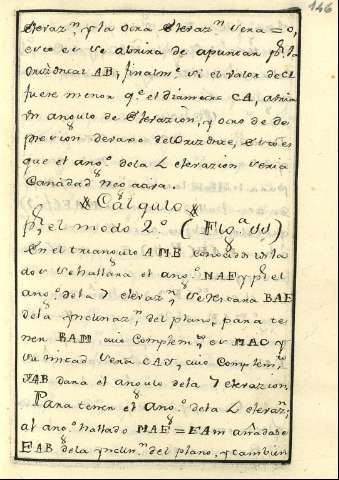 146
elevaz.n, y la otra elevaz.n sera = 0,
esto es se abrira de apuntar p.r la
orizontal AB, finalm.e si el valor de CL
fuere menor q.e el diametro CA, abria
un angulo de elevazion, y otro de de
presion devaxo del orizonte, esto es
que el ang.o dela L elevazion seria
Cantidad negativa
Calculo
p.r el modo 2.o (Fig.a 55)
En el triangulo AMB conocidos los la
dos se hallara el ang.o MAE y p.r el
ang.o dela 7 elevaz.n se restara BAE
dela ynclinaz.n del plano, para te
ner EAM, cuio Complem.to es MAO y
su mitad sera CAS, cuio Complem.to
SAB dara el angulo dela 7 elevazion
Para tener el ang.o dela L elevaz.n
al ang.o hallado MAE = EAm añadase
EAB dela ynclin.n del plano, y tambien